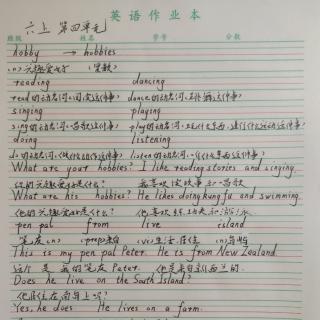 英语作业本
六上 第四单元
班级 姓名 学号 分数
hobby → hobbies
(n.)兴趣爱好 (复数)
reading dancing
read的动名词(阅读这件事) dance的动名词(跳舞这件事)
singing playing
sing的动名词(唱歌这件事) play的动名词
doing listening
do的动名词 listen的动名词
What are your hobbies? I like reading stories and singing.
你的兴趣爱好是什么? 我喜欢读故事和唱歌
What are his hobbies? He likes doing kung fu and swimming.
他的兴趣爱好是什么? 他喜欢练功夫和游泳
pen pal from live island
笔友(n.) (prep)来自 (v.)生活,居住 (n)岛屿
This is my pen pal Peter. He is from New Zealand.
这个是我的笔友Peter. 他是来自新西兰的.
Does he live on the South Island?
他居住在南岛上吗?
Yes, he does He lives on a farm.